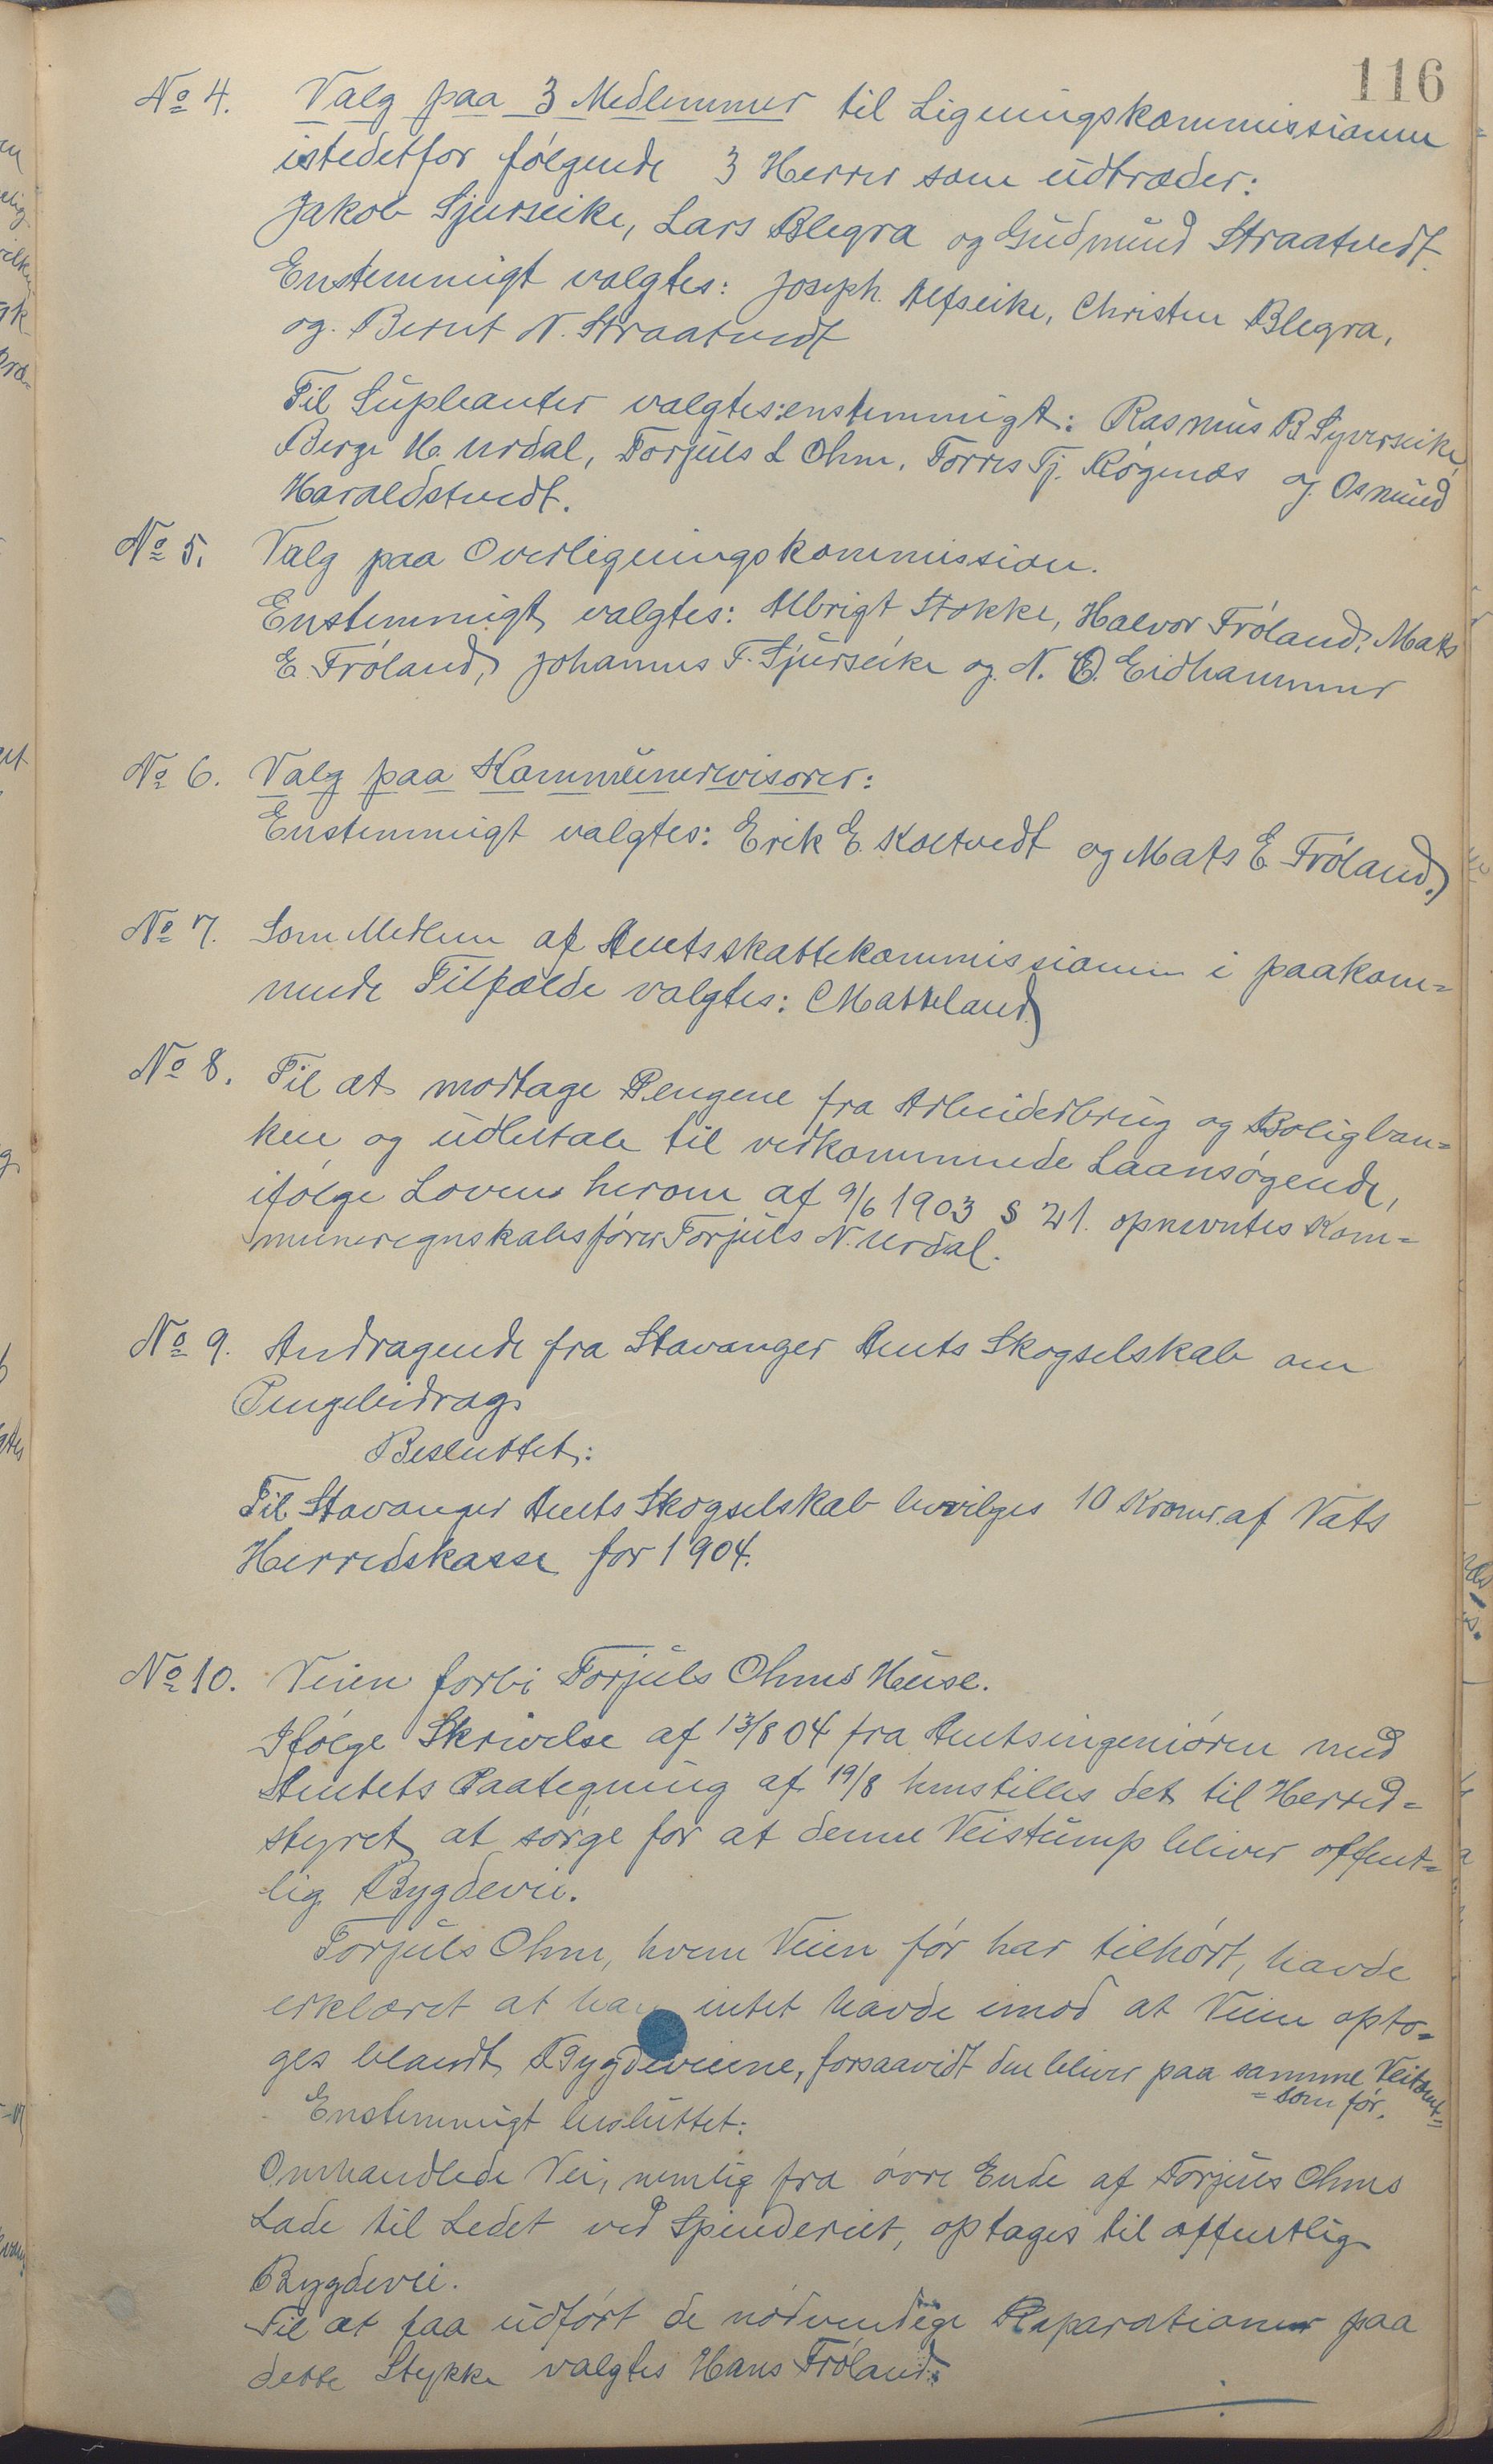 116
No 4. Valg paa 3 Medlemmer til Ligningskommissionen
istedetfor følgende 3 Herrer som udtræder:
Jakob Sjurseike, Lars Blegra og Gudmund Straatvedt.
Enstemmigt valgtes: Joseph Alfseike, Christen Blegra,
og Bernt N. Straatvedt
Til Supleanter valgtes enstemmigt: Rasmus B Syverseike,
Berge H. Urdal, Torjuls L Ohm, Torres Tj. Røgenæs og Osmund
Haraldstvedt.
No 5. Valg paa Overligningskommission.
Enstemmigt valgtes: Albrigt Stokke, Halvor Frøland, Mats
E. Frøland, Johannes T. Sjurseike og N. O. Eidhammer
No 6. Valg paa Kommunerevisorer:
Enstemmigt valgtes: Erik E. Koltvedt og Mats E. Frøland.
No 7. Som Medlem af Amtsskattekommissionen i paakom=
mende Tilfælde valgtes: Matteland
No 8. Til at modtage Pengene fra Arbeiderbrug og Boligban=
ken og udbetale til vedkommende Laansøgende,
ifølge Lovens herom af 9/6 1903 § 21. opnevntes Kom=
muneregnskabsfører Torjuls N. Urdal.
No 9. Andragende fra Stavanger Amts Skogselskab om
Pengebidrag
Besluttet:
Til Stavanger Amts Skogselskab bevilges 10 Kroner af Vats
Herredskasse for 1904.
No 10. Veien forbi Torjuls Ohms Huse.
Ifølge Skrivelse af 13/8 04 fra Amtsingeniøren med
Amtets Paategning af 19/8 henstilles det til Herred=
styret at sørge for at denne Veistump bliver offent=
lig Bygdevei.
Torjuls Ohm, hvem Veien før har tilhørt, havde
erklæret at han intet havde imod at Veien opto=
ges blandt Bygdeveiene, forsaavidt den bliver paa samme Veitomt=
=som før.
Enstemmigt besluttet:
Omhandlede Vei, nemlig fra øvre Ende af Torjuls Ohms
Lade til Ledet ved Spinderiet, optages til offentlig
Bygdevei.
Til at faa udført de nødvendige Reparationer paa
dette Stykke valgtes Hans Frøland.